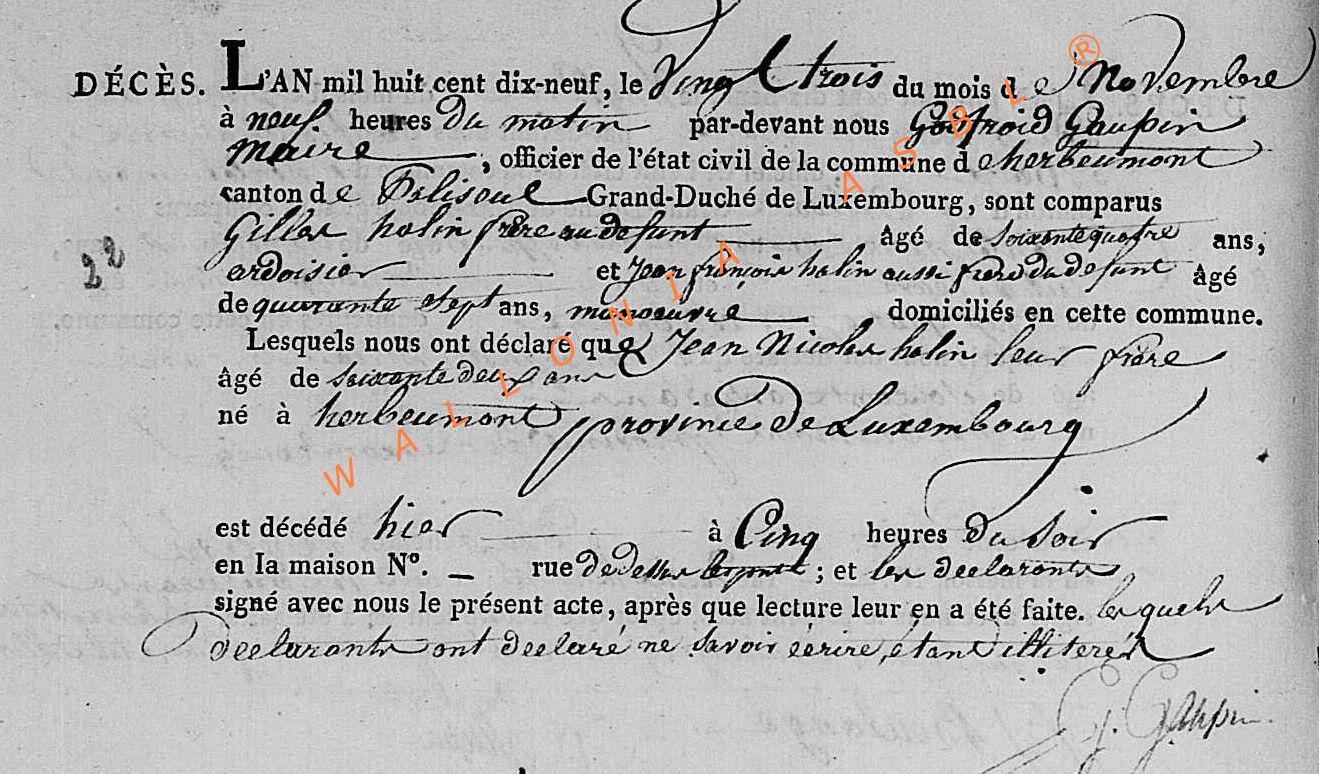 DÉCÈS. L'AN mil huit cent dix-neuf, le Vingt trois du mois de Novembre
à neuf heures Du matin par-devant nous Godfroid Gaupin
Maire, officier de l'état civil de la commune d'herbeumont
canton de Paliseul Grand-Duché de Luxembourg, sont comparus
Gilles halin frère au defunt âgé de soixante quatre ans,
22
ardoisier et Jean françois halin aussi frère du defunt âgé
de quarante sept ans, manoeuvre domiciliés en cette commune.
Lesquels nous ont déclaré que Jean Nicolas halin leur frère
âgé de soixante deux ans
né à herbeumont province de Luxembourg
est décédé hier à Cinq heures du soir
en la maison N°. — rue De dessus ; et les declarants
signé avec nous le présent acte, après que lecture leur en a été faite. les quels
declarants ont declaré ne savoir écrire, étant illiterés
G. Gaupin.
WALLONIA ASBL ®